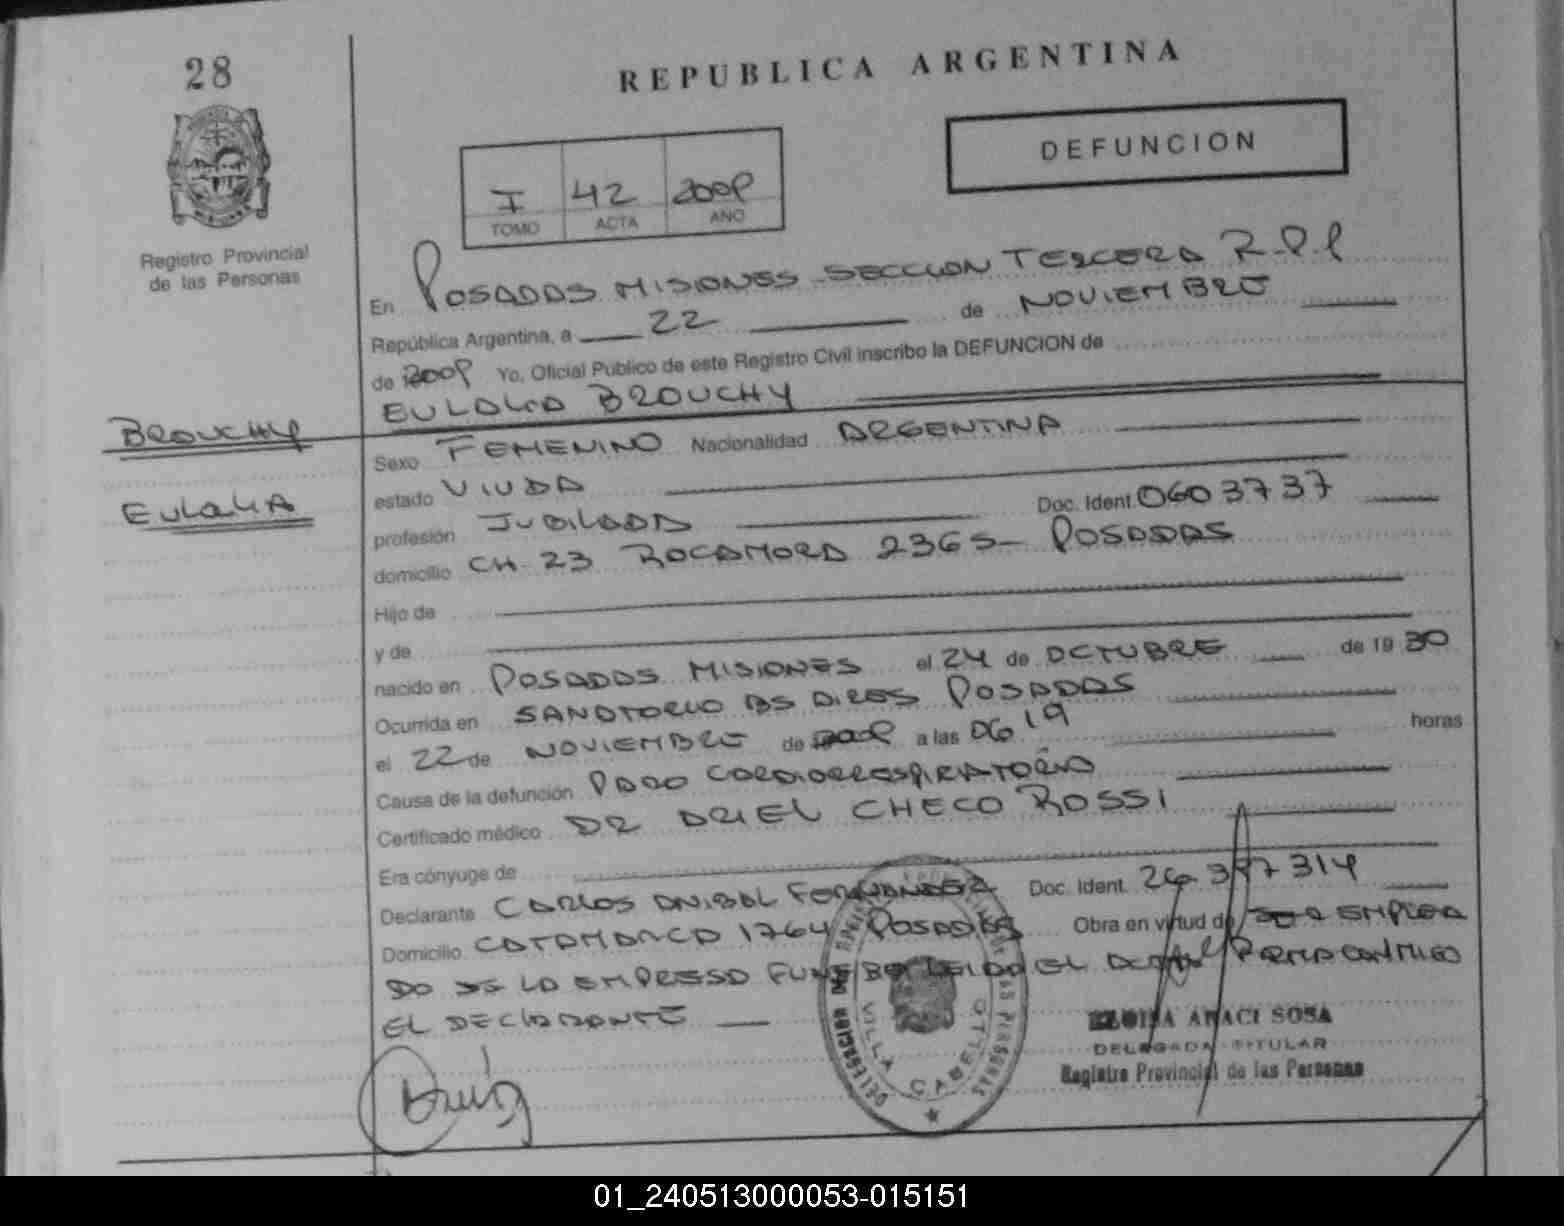 28
REPUBLICA ARGENTINA
DEFUNCION
I 42
TOMO ACTA AÑO
Registro Provincial
de las Personas
En POSADAS MISIONES SECCION TERCERA R.P.P
República Argentina, a 22 de NOVIEMBRE
de Yo, Oficial Público de este Registro Civil inscribo la DEFUNCION de
EULALIA BROUCHY
BROUCHY
EULALIA
Sexo FEMENINO Nacionalidad ARGENTINA
estado VIUDA
profesión JUBILADA Doc. Ident. 0603737
domicilio CH. 23 ROCAMORA 2365 - POSADAS
Hijo de
y de
nacido en POSADAS MISIONES el 24 de OCTUBRE de 19 30
Ocurrida en SANATORIO BS AIRES POSADAS
el 22 de NOVIEMBRE de a las 06 19 horas
Causa de la defunción PARO CARDIORRESPIRATORIO
Certificado médico DR ARIEL CHECO ROSSI
Era cónyuge de
Declarante CARLOS ANIBAL FERNANDEZ Doc. Ident.
Domicilio CATAMARCA 1764 POSADAS Obra en virtud de SER EMPLEA
DO DE LA EMPRESA LEIDA EL ACTA FIRMA CONMIGO
EL DECLARANTE
DELEGACION DEL REGISTRO PROVINCIAL DE LAS PERSONAS
VILLA CABELLO
ELOISA ARACI SOSA
DELEGADA TITULAR
Registro Provincial de las Personas
01_240513000053-015151